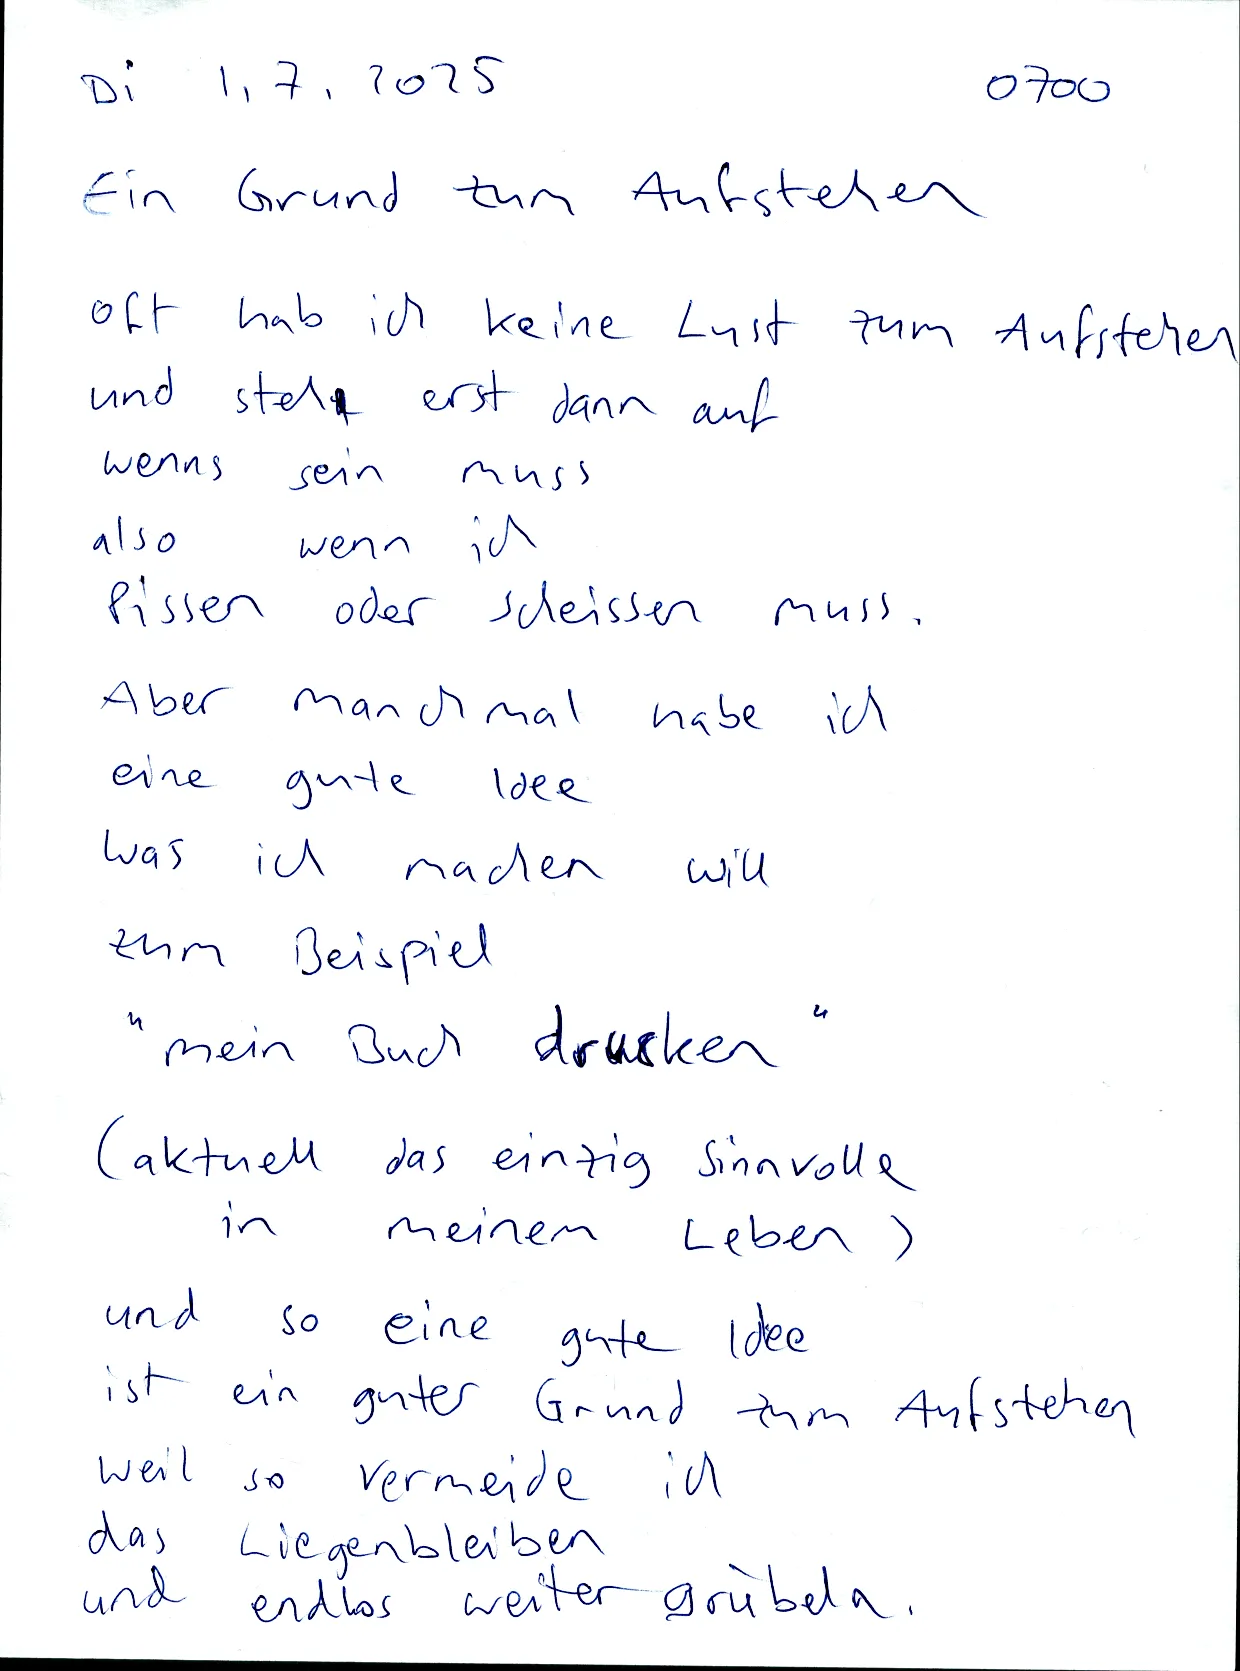 Di 1.7.2025 0700
Ein Grund zum Aufstehen
oft hab ich keine Lust zum Aufstehen
und steh erst dann auf
wenns sein muss
also wenn ich
Pissen oder scheissen muss.
Aber manchmal habe ich
eine gute Idee
was ich machen will
zum Beispiel
"mein Buch drucken"
(aktuell das einzig Sinnvolle
in meinem Leben)
und so eine gute Idee
ist ein guter Grund zum Aufstehen
weil so vermeide ich
das Liegenbleiben
und endlos weiter grübeln.